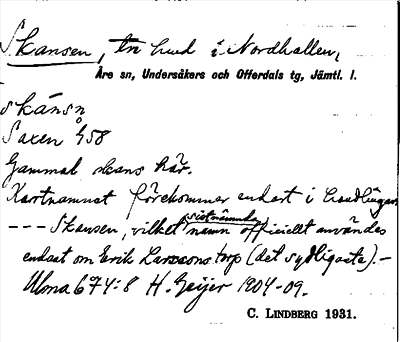 Skansen, tn hmd i Nordhallen,
Åre sn, Undersåkers och Offerdals tg, Jämtl. l.
skánsn
Saxen 458
Gammal skans här.
Kartnamnet förekommer endast i
--- Skansen, vilket sistnämnda namn officiellt användes
endast om Erik Larssons torp (det sydligaste). –
Ulma 674:8 H. Geijer 1904-09.
C. LINDBERG 1931.